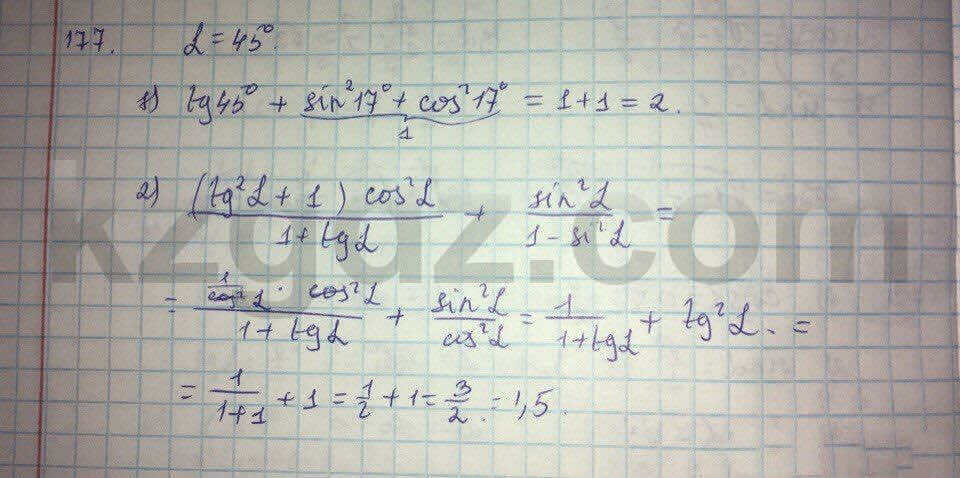 177. α = 45°.
1) tg45° + sin²17° + cos²17° = 1 + 1 = 2.
1
2) (tg²α + 1) cos²α / 1 + tgα + sin²α / 1 - si²α =
= 1/cos²α · cos²α / 1 + tgα + sin²α / cos²α = 1 / 1 + tgα + tg²α. =
= 1 / 1+1 + 1 = 1/2 + 1 = 3/2. = 1,5.
kzgdz.com